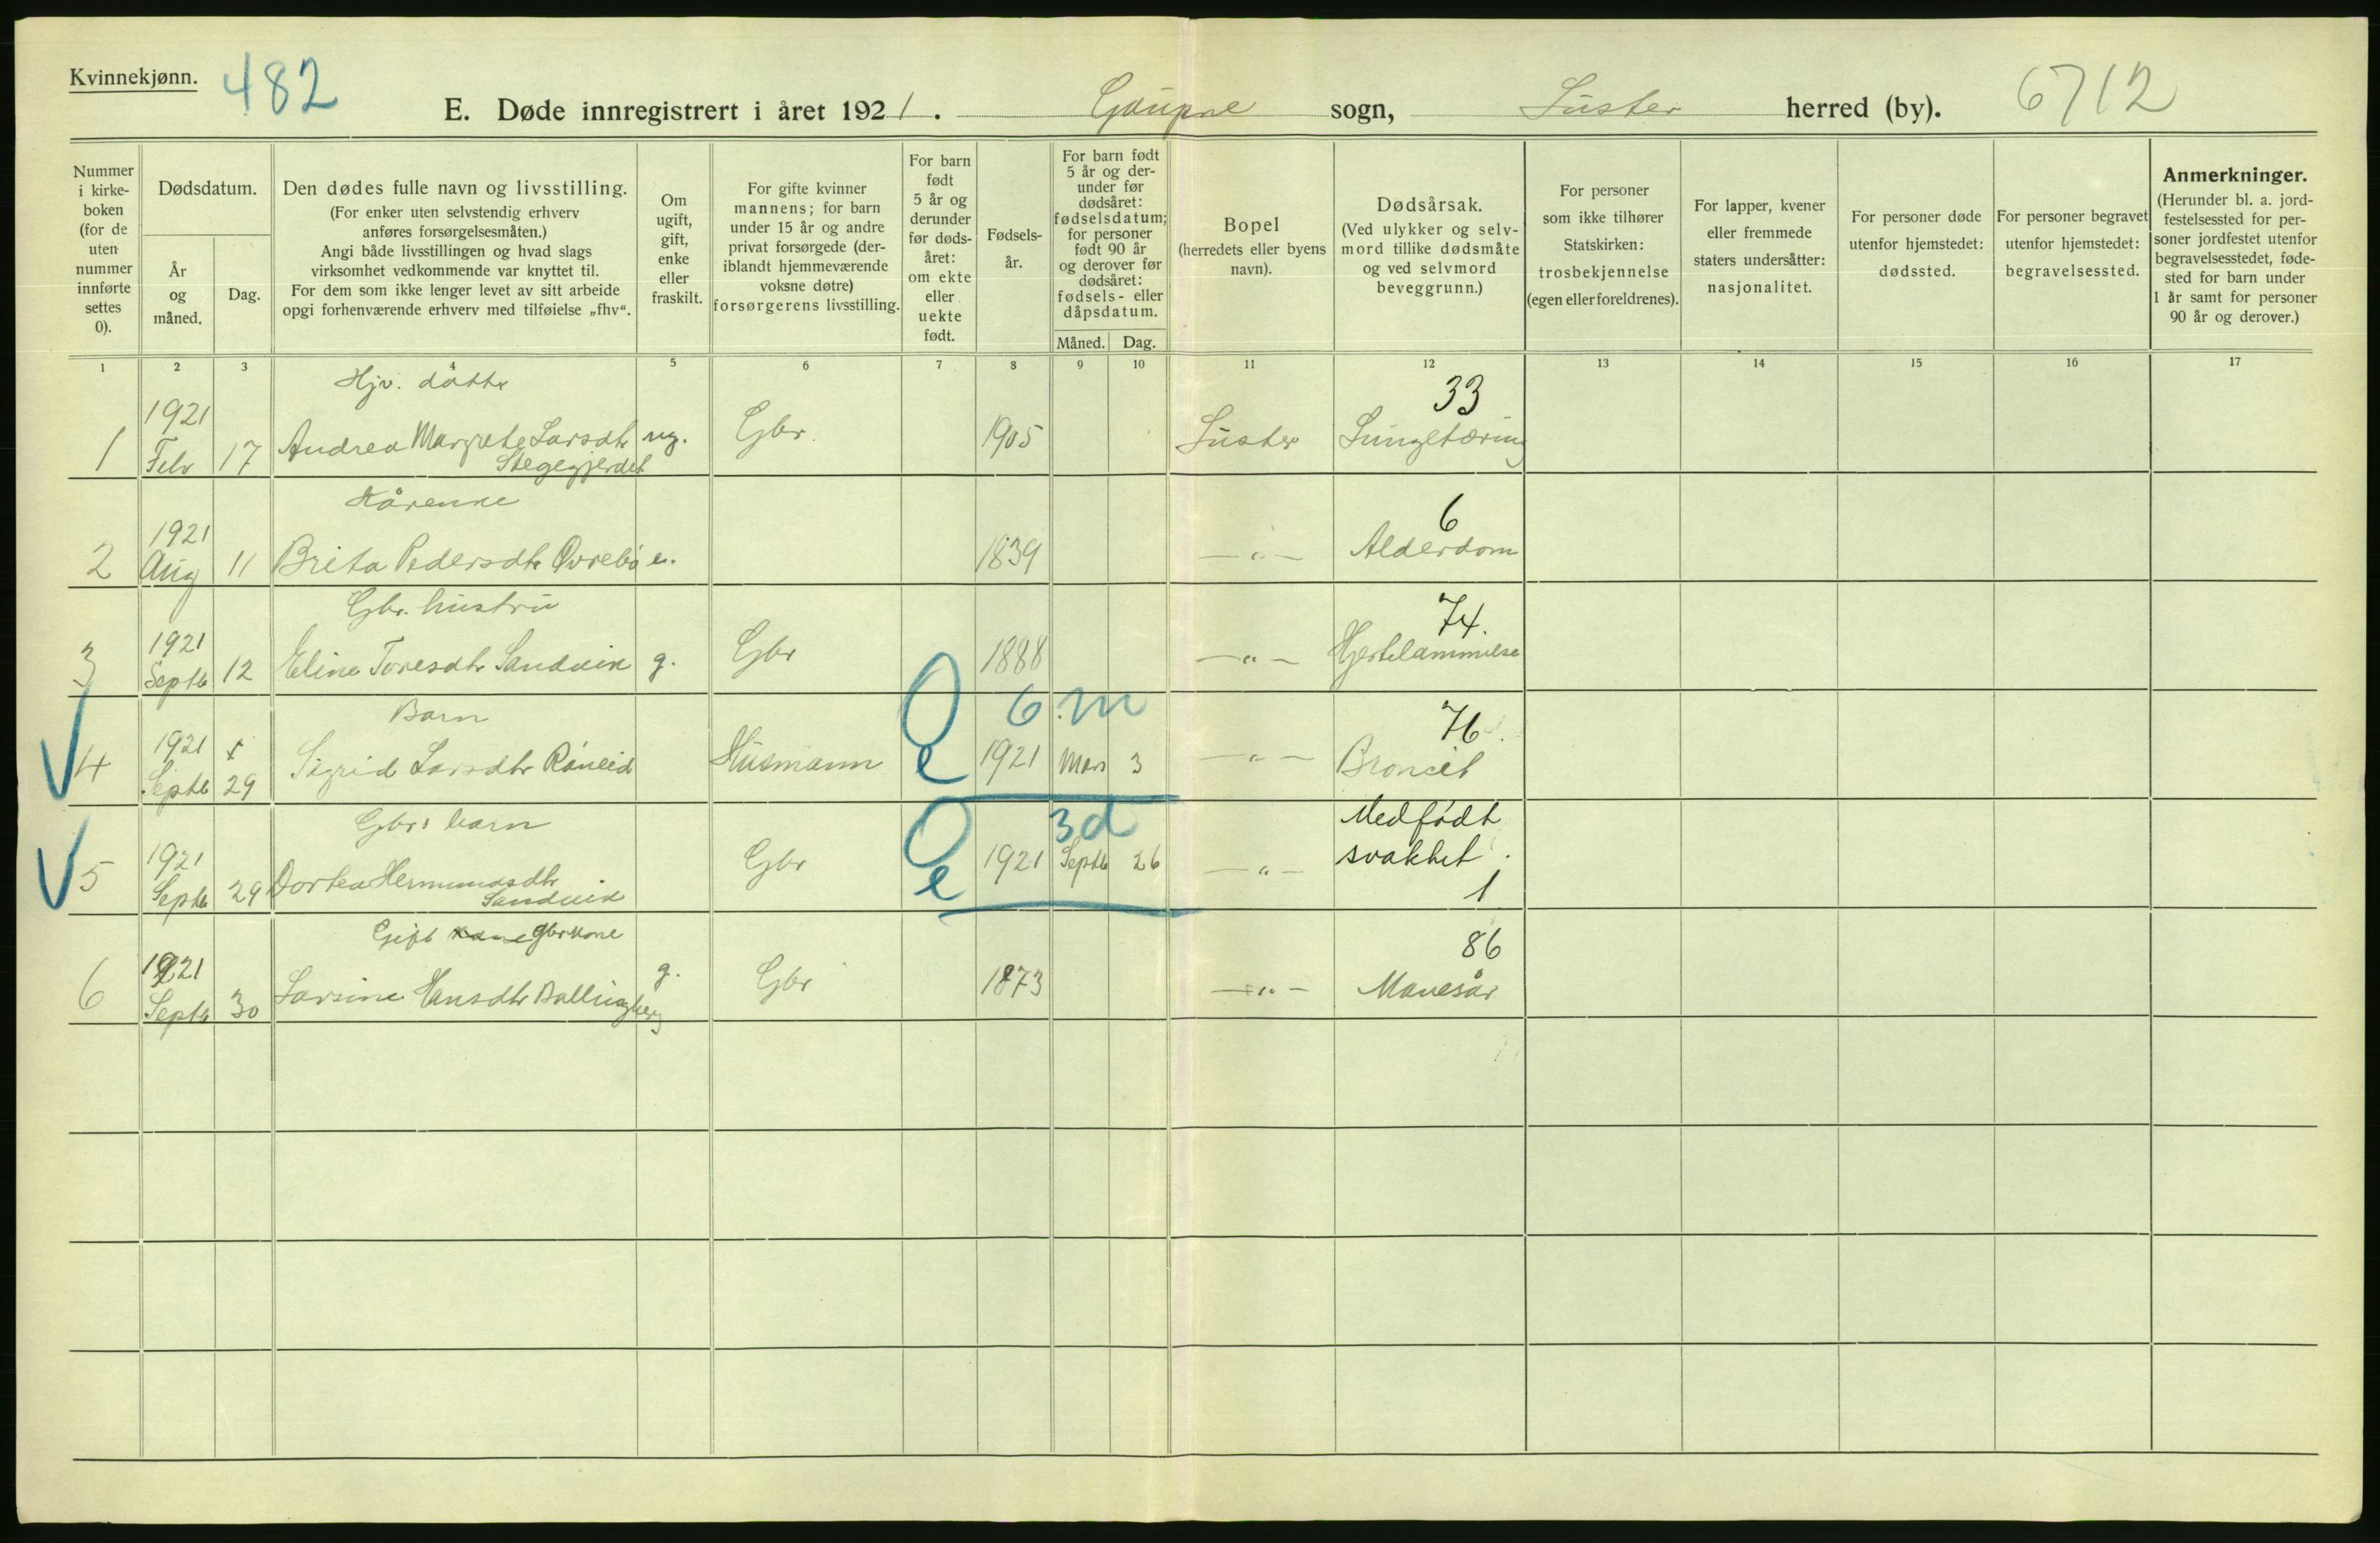 Kvinnekjønn.
482
E. Døde innregistrert i året 1921. Gaupne sogn, Luster herred (by).
6712
Nummer i kirke-boken (for de uten nummer innførte settes 0).
Dødsdatum.
År og måned.
Dag.
Den dødes fulle navn og livsstilling.
(For enker uten selvstendig erhverv
anføres forsørgelsesmåten.)
Angi både livsstillingen og hvad slags
virksomhet vedkommende var knyttet til.
For dem som ikke lenger levet av sitt arbeide
opgi forhenværende erhverv med tilføielse „fhv“.
Om ugift, gift, enke eller fraskilt.
For gifte kvinner
mannens; for barn
under 15 år og andre
privat forsørgede (der-
iblandt hjemmeværende
voksne døtre)
forsørgerens livsstilling.
For barn født 5 år og derunder før døds-året: om ekte eller uekte født.
Fødsels-år.
For barn født
5 år og der-
under før
dødsåret:
fødselsdatum;
for personer
født 90 år
og derover før
dødsåret:
fødsels- eller
dåpsdatum.
Måned. Dag.
Bopel
(herredets eller byens
navn).
Dødsårsak.
(Ved ulykker og selv-
mord tillike dødsmåte
og ved selvmord
beveggrunn.)
For personer
som ikke tilhører
Statskirken:
trosbekjennelse
(egen eller foreldrenes).
For lapper, kvener
eller fremmede
staters undersåtter:
nasjonalitet.
For personer døde
utenfor hjemstedet:
dødssted.
For personer begravet
utenfor hjemstedet:
begravelsessted.
Anmerkninger.
(Herunder bl. a. jord-
festelsessted for per-
soner jordfestet utenfor
begravelsesstedet, føde-
sted for barn under
1 år samt for personer
90 år og derover.)
1 2 3 4 5 6 7 8 9 10 11 12 13 14 15 16 17
Hjv. datter 33
1 1921 Febr 17 Andrea Margrete Larsdtr ug. Gbr. 1905 Luster Lungetæring
Stegegjerdet
Kårenke 6
2 1921 Aug 11 Brita Pedersdtr Øvrebø e. 1839 —"— Alderdom
Gbr. hustru 74.
3 1921 Septb 12 Eline Toresdtr Sandvik g. Gbr 1888 —"— Hjertelammelse
Barn 6 m 76.
4 1921 Septb 29 Sigrid Larsdtr Røneid Husmann e 1921 Mars 3 —"— Broncit
Gbrs barn 3d Medfødt
5 1921 Septb 29 Dortea Hermundsdtr Gbr e 1921 Septb 26 —"— svakhet.
Sandvik 1
Gift kone gbrkone 86
6 1921 Septb 30 Larsine Hansdtr Ballingberg g. Gbr 1873 —"— Mavesår